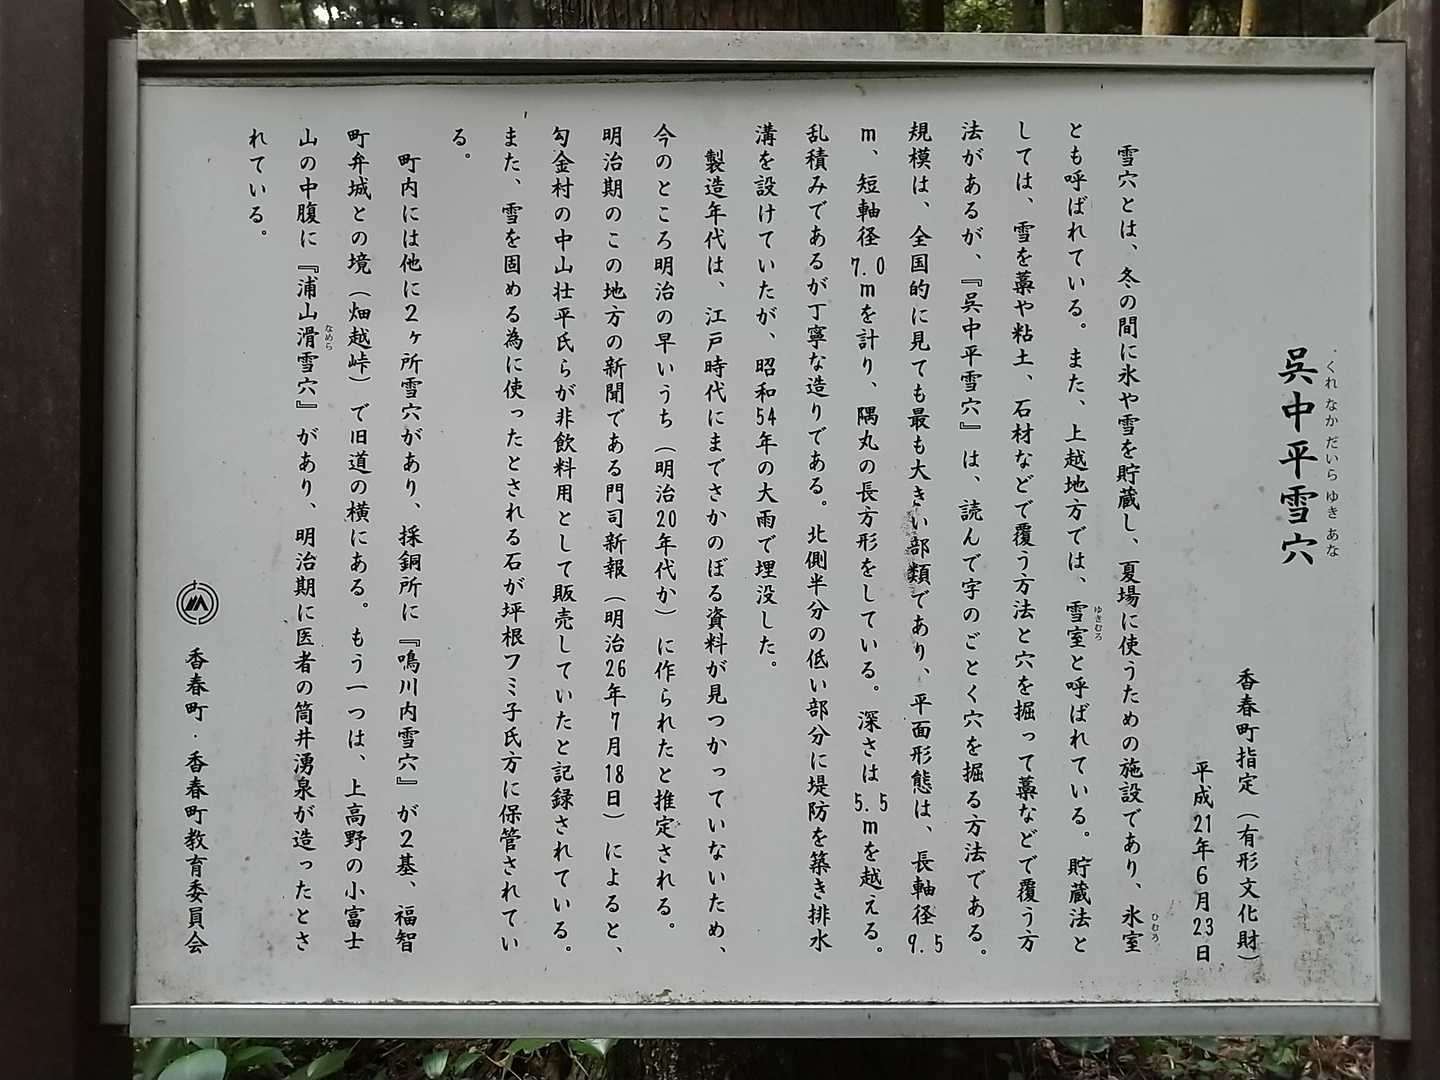 呉中平雪穴
くれ なか だいら ゆき あな
香春町指定（有形文化財）
平成21年6月23日
雪穴とは、冬の間に氷や雪を貯蔵し、夏場に使うための施設であり、氷室
ひむろ
とも呼ばれている。また、上越地方では、雪室と呼ばれている。貯蔵法と
ゆきむろ
しては、雪を藁や粘土、石材などで覆う方法と穴を掘って藁などで覆う方
法があるが、『呉中平雪穴』は、読んで字のごとく穴を掘る方法である。
規模は、全国的に見ても最も大きい部類であり、平面形態は、長軸径9.5
m、短軸径7.0mを計り、隅丸の長方形をしている。深さは5.5mを越える。
乱積みであるが丁寧な造りである。北側半分の低い部分に堤防を築き排水
溝を設けていたが、昭和54年の大雨で埋没した。
製造年代は、江戸時代にまでさかのぼる資料が見つかっていないため、
今のところ明治の早いうち（明治20年代か）に作られたと推定される。
明治期のこの地方の新聞である門司新報（明治26年7月18日）によると、
勾金村の中山壮平氏らが非飲料用として販売していたと記録されている。
また、雪を固める為に使ったとされる石が坪根フミ子氏方に保管されてい
る。
町内には他に2ヶ所雪穴があり、採銅所に『鳴川内雪穴』が2基、福智
町弁城との境（畑越峠）で旧道の横にある。もう一つは、上高野の小富士
山の中腹に『浦山滑雪穴』があり、明治期に医者の筒井湧泉が造ったとさ
なめら
れている。
香春町・香春町教育委員会